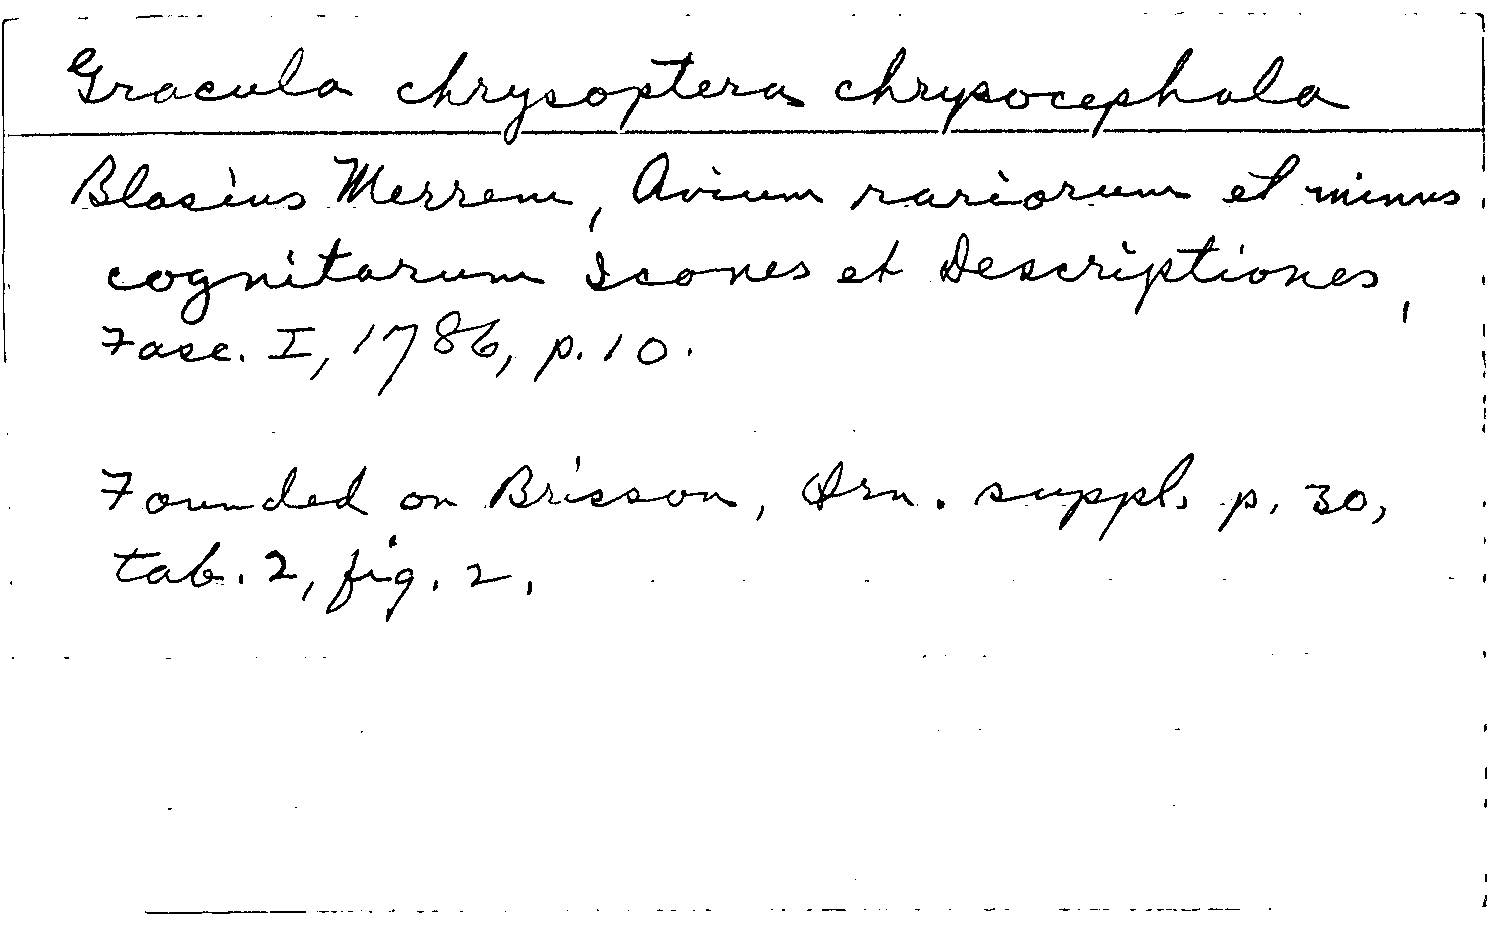 Gracula chrysoptera chrysocephala
Blasius Merrem, Avium rariorum et minus
cognitarum Icones et Descriptiones,
Fasc. I, 1786, p. 10.
Founded on Brisson, Orn. suppl. p. 30,
tab. 2, fig. 2.